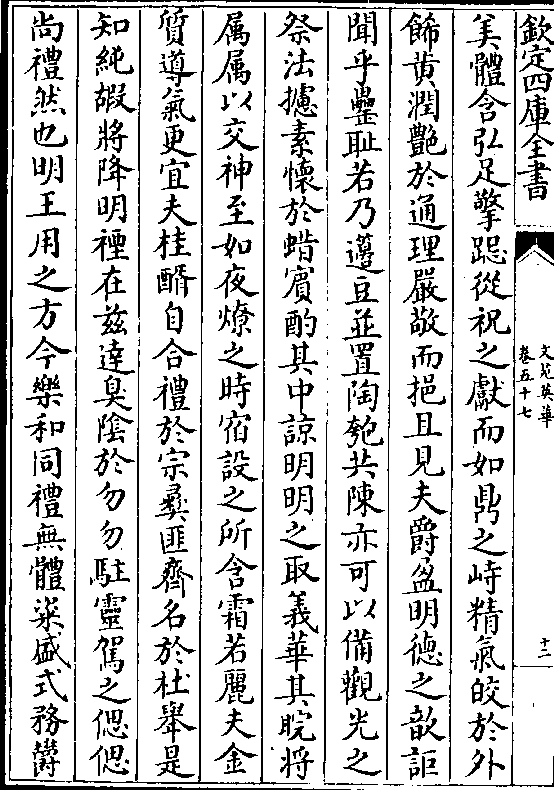 欽定四庫全書
文苑英華
卷五十七
十二
美體含弘足擎跽從祝之獻而如鼎之峙精氣皎於外
飾黄潤艷於通理嚴敬而挹且見夫爵盈明德之歆詎
聞乎罍耻若乃籩豆並置陶匏共陳亦可以備觀光之
祭法攄素懷於蜡賓酌其中諒明明之取義華其睆將
属属以交神至如夜燎之時宿設之所含霜若麗夫金
質導氣更宜夫桂醑自合禮於宗彛匪齊名於杜舉是
知純嘏將降明禋在兹達臭隂於勿勿駐靈駕之偲偲
尚禮然也明王用之方今樂和同禮無體粢盛式務欝